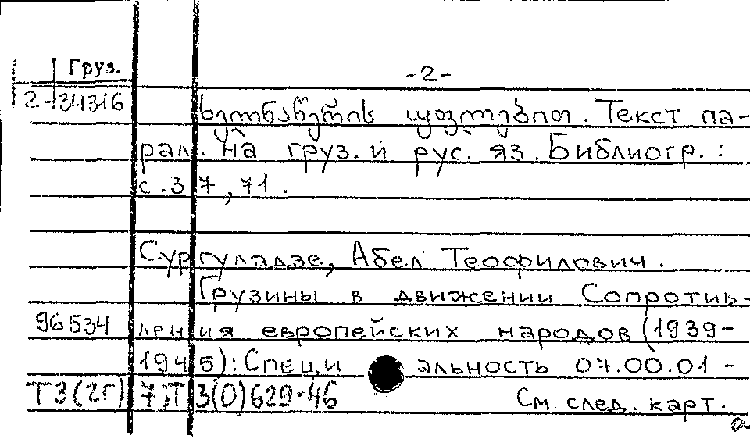 Груз.
-2-
2-34316
ხელნაწერის უფლებით. Текст па-
рал. на груз. и рус. яз. Библиогр.:
с. 37, 71.
Сургуладзе, Абел Теофилович.
Грузины в движении Сопротив-
96534 ления европейских народов (1939-
1945): Специ альность 07.00.01 -
Т3(2Г)7; Т3(0)629-46 См. след. карт.